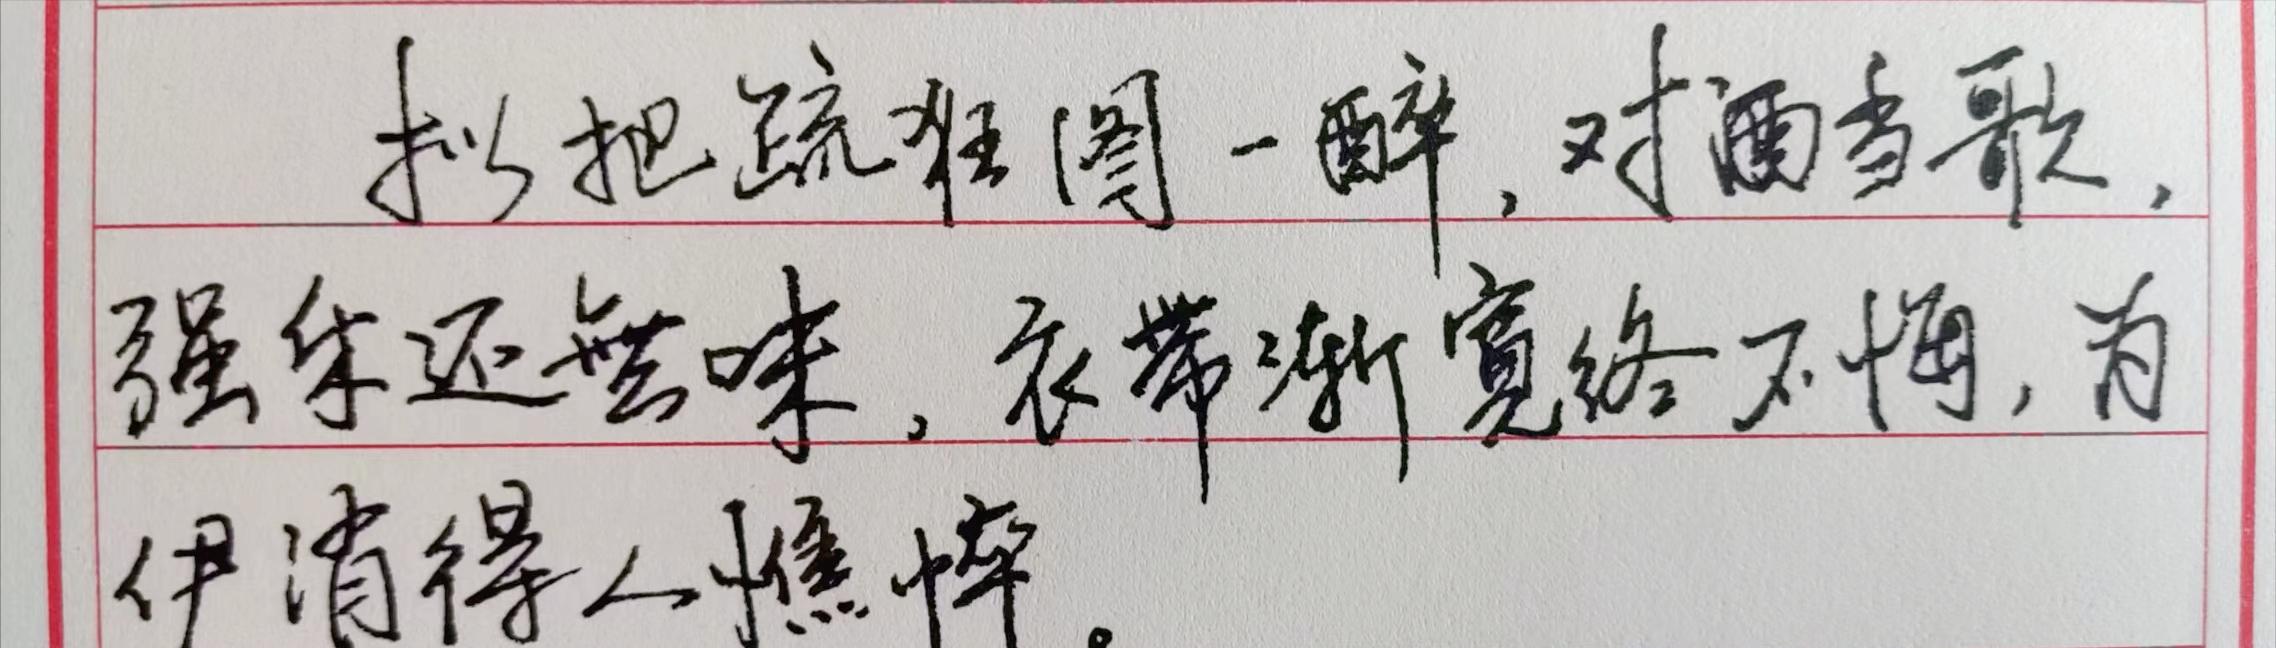 拟把疏狂图一醉，对酒当歌，
强乐还無味，衣带渐宽终不悔，为
伊消得人憔悴。